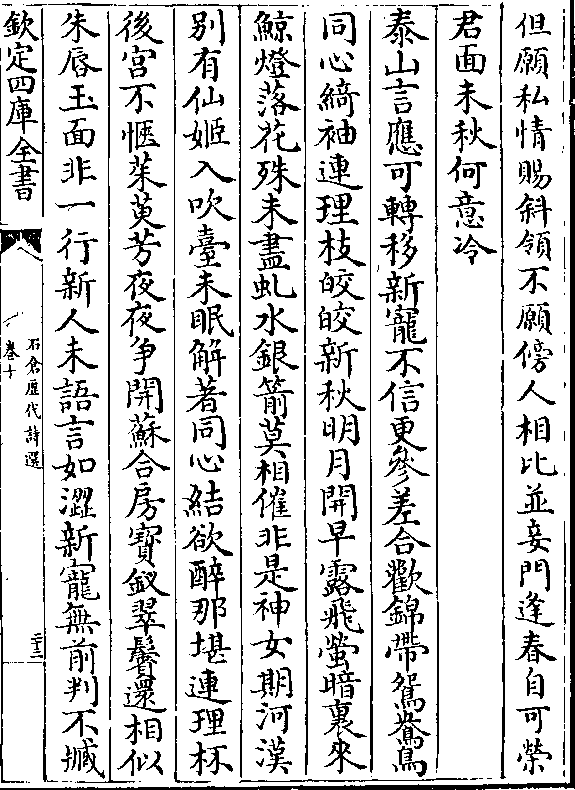 但願私情賜斜領不願傍人相比並妾門逢春自可榮
君面未秋何意冷
泰山言應可轉移新寵不信更參差合歡錦帶鴛鴦鳥
同心綺袖連理枝皎皎新秋明月開早露飛螢暗裏來
鯨燈落花殊未盡虬水銀箭莫相催非是神女期河漢
別有仙姬入吹臺未眠解著同心結欲醉那堪連理杯
後宮不愜茱萸芳夜夜争開蘇合房寳釵翠鬢還相似
朱唇玉面非一行新人未語言如澀新寵無前判不㨔
欽定四庫全書
石倉歴代詩選
卷十
二十三